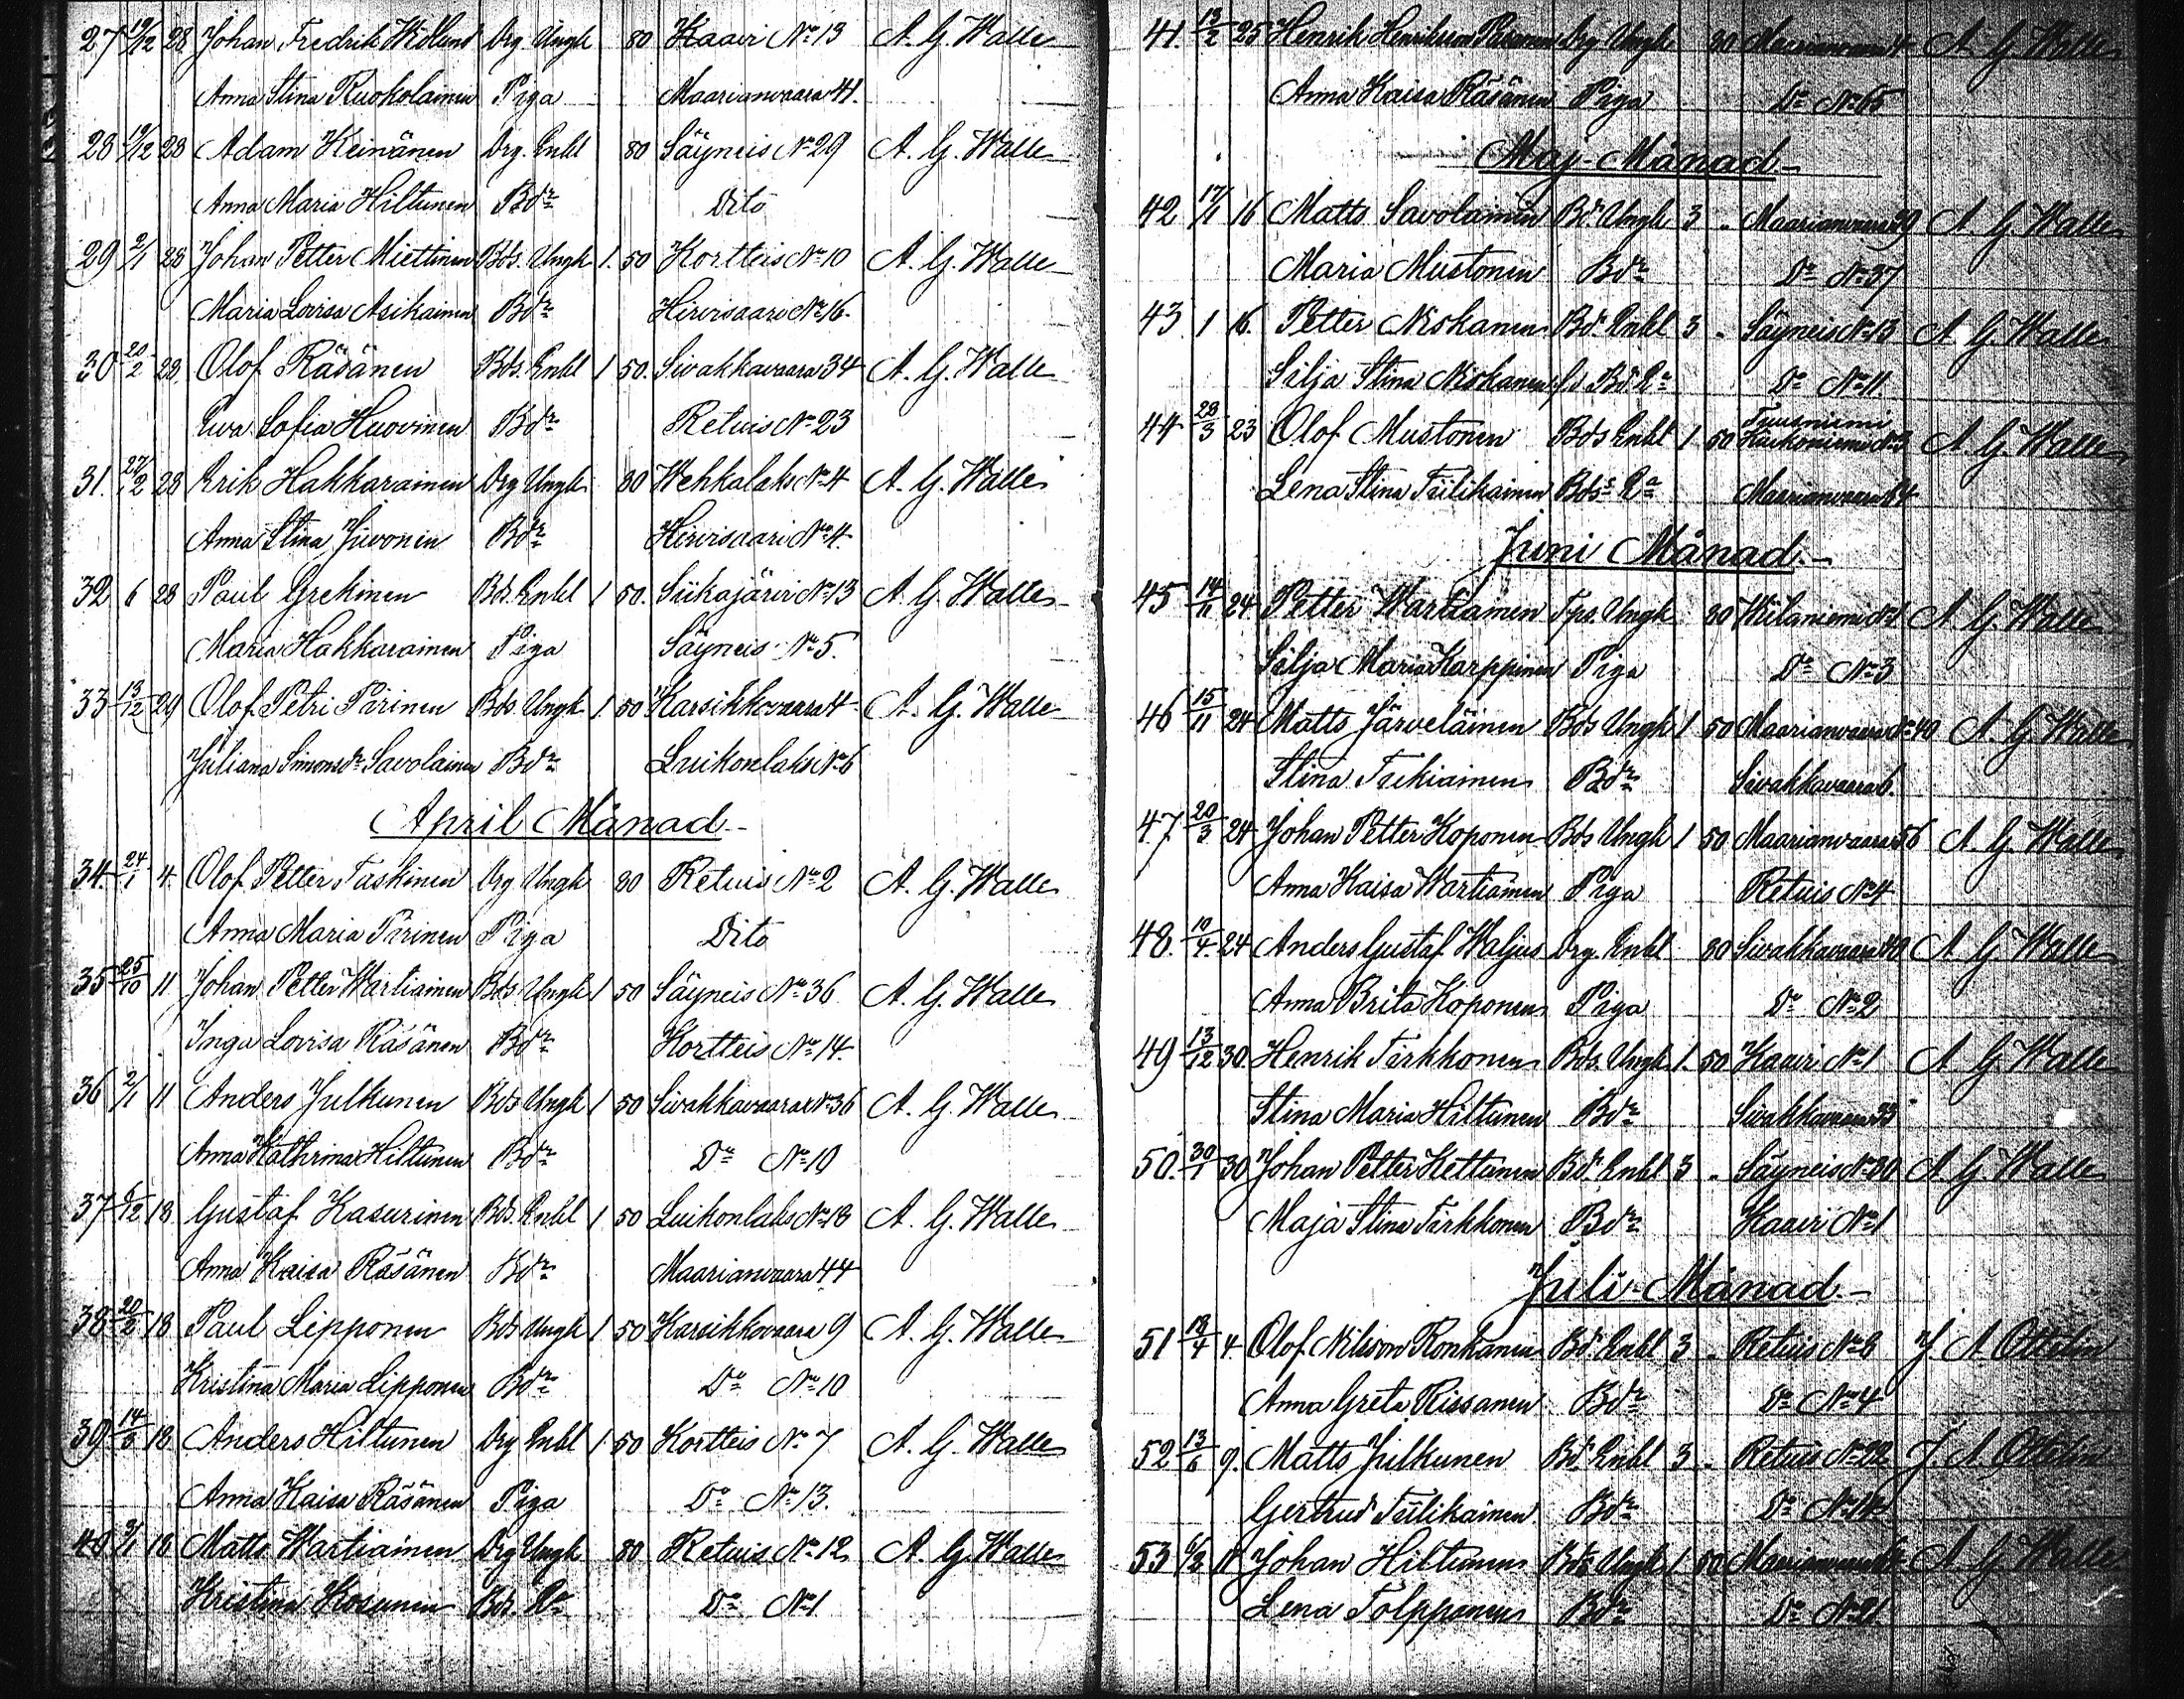 27 19/12 28 Johan Fredrik Widlund Drg. Ungk 80 Kaavi No 13 A. G. Walle
Anna Stina Ruokolainen Piga Maarianvaara 41.
28 19/12 28 Adam Keinänen Drg. Enkl 80 Säyneis No 29 A. G. Walle
Anna Maria Hiltunen Bdr Dito
29 2/1 28 Johan Petter Miettinen Bds. Ungk 1. 50 Kortteis No 10 A. G. Walle
Maria Lovisa Asikainen Bdr Hirvisaari No 16.
30 20/2 28 Olof Räsänen Bds. Enkl 1 50. Sivakkavaara 34 A. G. Walle
Ewa Sofia Huovinen Bdr Retuis No 23
31. 27/12 28 Erik Hakkarainen Drg Ungk 80 Wehkalaks No 4 A. G. Walle
Anna Stina Juvonen Bdr Hirvisaari No 4.
32 6 28 Paul Grekinen Bds. Enkl 1 50. Siikajärvi No 13 A. G. Walle
Maria Hakkarainen Piga Säyneis No 5.
33 13/12 29 Olof Petri Pirinen Bds. Ungk 1. 50 Karsikkovaara 4 A. G. Walle
Juliana Simonsdr Savolainen Bdr Luikonlaks No 6
April Månad.
34. 24/1 4. Olof Petter Taskinen Drg Ungk 80 Retuis No 2 A. G. Walle
Anna Maria Pirinen Piga Dito
35 25/10 11 Johan Petter Wartiainen Bds. Ungk 1 50 Säyneis No 36 A. G. Walle
Inga Lovisa Räsänen Bdr Kortteis No 14.
36 2/1 11 Anders Julkunen Bds Ungk 1 50 Sivakkavaara No 36 A. G. Walle
Anna Kathrina Hiltunen Bdr Do No 10
37 6/12 18 Gustaf Kasurinen Bds. Enkl 1 50 Luikonlaks No 18 A. G. Walle
Anna Kaisa Räsänen Bdr Maarianvaara 44
38 20/2 18 Paul Lipponen Bds Ungk 1. 50 Karsikkovaara 9 A. G. Walle
Kristina Maria Lipponen Bdr Do No 10
39 14/3 18 Anders Hiltunen Drg Enkl 1. 50 Kortteis No 7 A. G. Walle
Anna Kaisa Räsänen Piga Do No 13.
40 18 Matts Wartiainen Drg Ungk 80 Retuis No 12 A. G. Walle
Kristina Kosunen Bds. Ea Do No 1
41. 13/2 25 Henrik Henriksson Drg. Ungk 80 A. G. Walle
Anna Kaisa Räsänen Piga Do No 65
Maj-Månad
42 17/1 16 Matts Savolainen Bd. Ungk 3 Maarianvaara 39 A. G. Walle
Maria Mustonen Bdr Do No 37
43. 1 16. Petter Niskanen Bd. Enkl 3 Säyneis No 13 A. G. Walle
Silja Stina Niskanen f.d. Bd. Ea Do No 11.
44 23/3 23 Olof Mustonen Bds Enkl 1. 50 Tuusniemi A. G. Walle
Lena Stina Tiilikainen Bds Ea Maarianvaara 64
Juni Månad.
45 14/11 24 Petter Wartiainen Tps. Ungk 80 Wiitaniemi No 1 A. G. Walle
Silja Maria Karppinen Piga Do No 3
46 15/11 24 Matts Järveläinen Bds Ungk 1 50 Maarianvaara No 40 A. G. Walle
Stina Tiikiainen Bdr Sivakkavaara 6.
47 20/3 24 Johan Petter Koponen Bds Ungk 1 50 Maarianvaara 56 A. G. Walle
Anna Kaisa Wartiainen Piga Retuis No 4
48. 10/4 24 Anders Gustaf Waljus Drg. Enkl 80 Sivakkavaara A. G. Walle
Anna Brita Koponen Piga Do No 2
49 13/12 30. Henrik Tirkkonen Bds. Ungk 1. 50 Kaavi No 1 A. G. Walle
Stina Maria Hiltunen Bdr Sivakkavaara 35
50. 30/1 30 Johan Petter Kettunen Bd. Enkl 3 Säyneis No 30 A. G. Walle
Maja Stina Tirkkonen Bdr Kaavi No 1
Juli-Månad.
51 18/4 4. Olof Nilsson Ronkanen Bd. Enkl 3 Retuis No 8 J. A. Ottelin
Anna Greta Rissanen Bdr Do No 4
52 13/6 9. Matts Julkunen Bd. Enkl 3 Retuis No 22 J. A. Ottelin
Gertrud Tiilikainen Bdr Do No 14
53 11 Johan Hiltunen Bds Ungk 1 50 Maarianvaara A. G. Walle
Lena Tolpponen Bdr Do No 21.